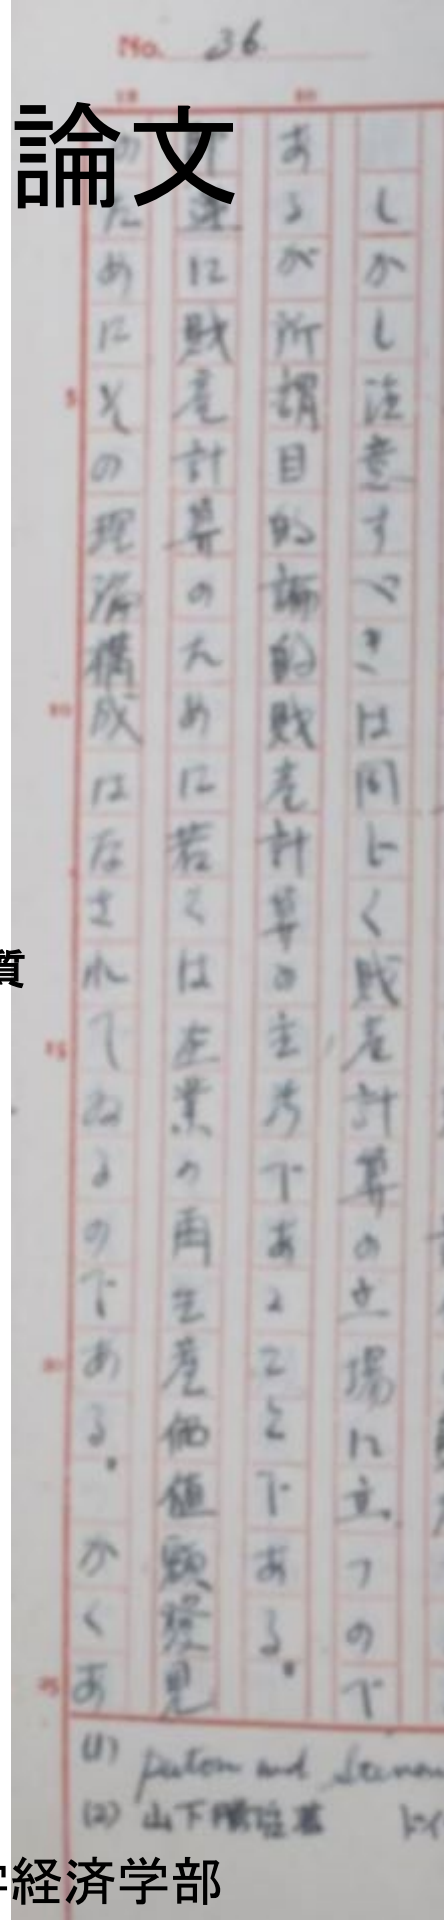 論文
No. 36
しかし注意すべきは同じく財産計算の立場に立つので
あるが所謂目的論的財産計算の主であることである。
に財産計算のために若くは企業の再生産価値額発見
ためにその理論構成はなされてゐるのである。かくあ
(1) Paton and
(2) 山下勝治著 ドイ
質
経済学部